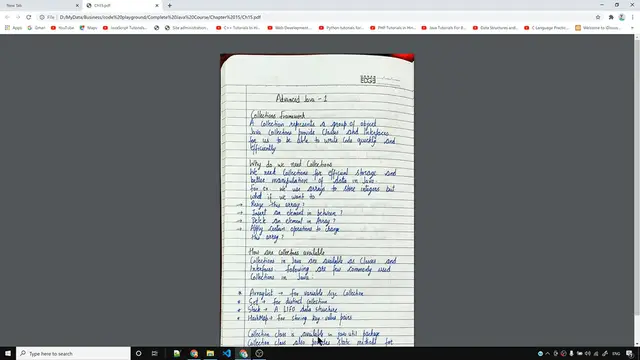 New Tab
Ch15.pdf
File
D:/MyData/Business/code%20playground/Complete%20Java%20Course/Chapter%2015/Ch15.pdf
Apps
YouTube
Maps
JavaScript Tutorials
Site administration
C++ Tutorials In Hi
Web Development
Python Tutorials for
PHP Tutorials In Hi
Java Tutorials For B
Data Structures and
C Language Practic
Welcome to IDisco
Advanced Java - 1
Collections Framework
A Collection represents a group of object
Java Collections provide Classes and Interfaces
for us to be able to write Code quickly and
efficiently
Why do we need Collections
We need Collections for efficient storage and
better manipulation of data in Java.
For ex we use arrays to store integers but
what if we want to
→ Resize this array?
→ Insert an element in between?
→ Delete an element in Array?
→ Apply certain operations to change
this array?
How are Collections available
Collections in Java are available as Classes and
Interfaces Following are few commonly used
Collections in Java:
* ArrayList → For variable size Collection
* Set → For distinct Collection
* Stack → A LIFO data structure
* HashMap → For storing key-value pairs
Collection class is available in java.util package
Collection class also provides static methods for
Type here to search
ENG